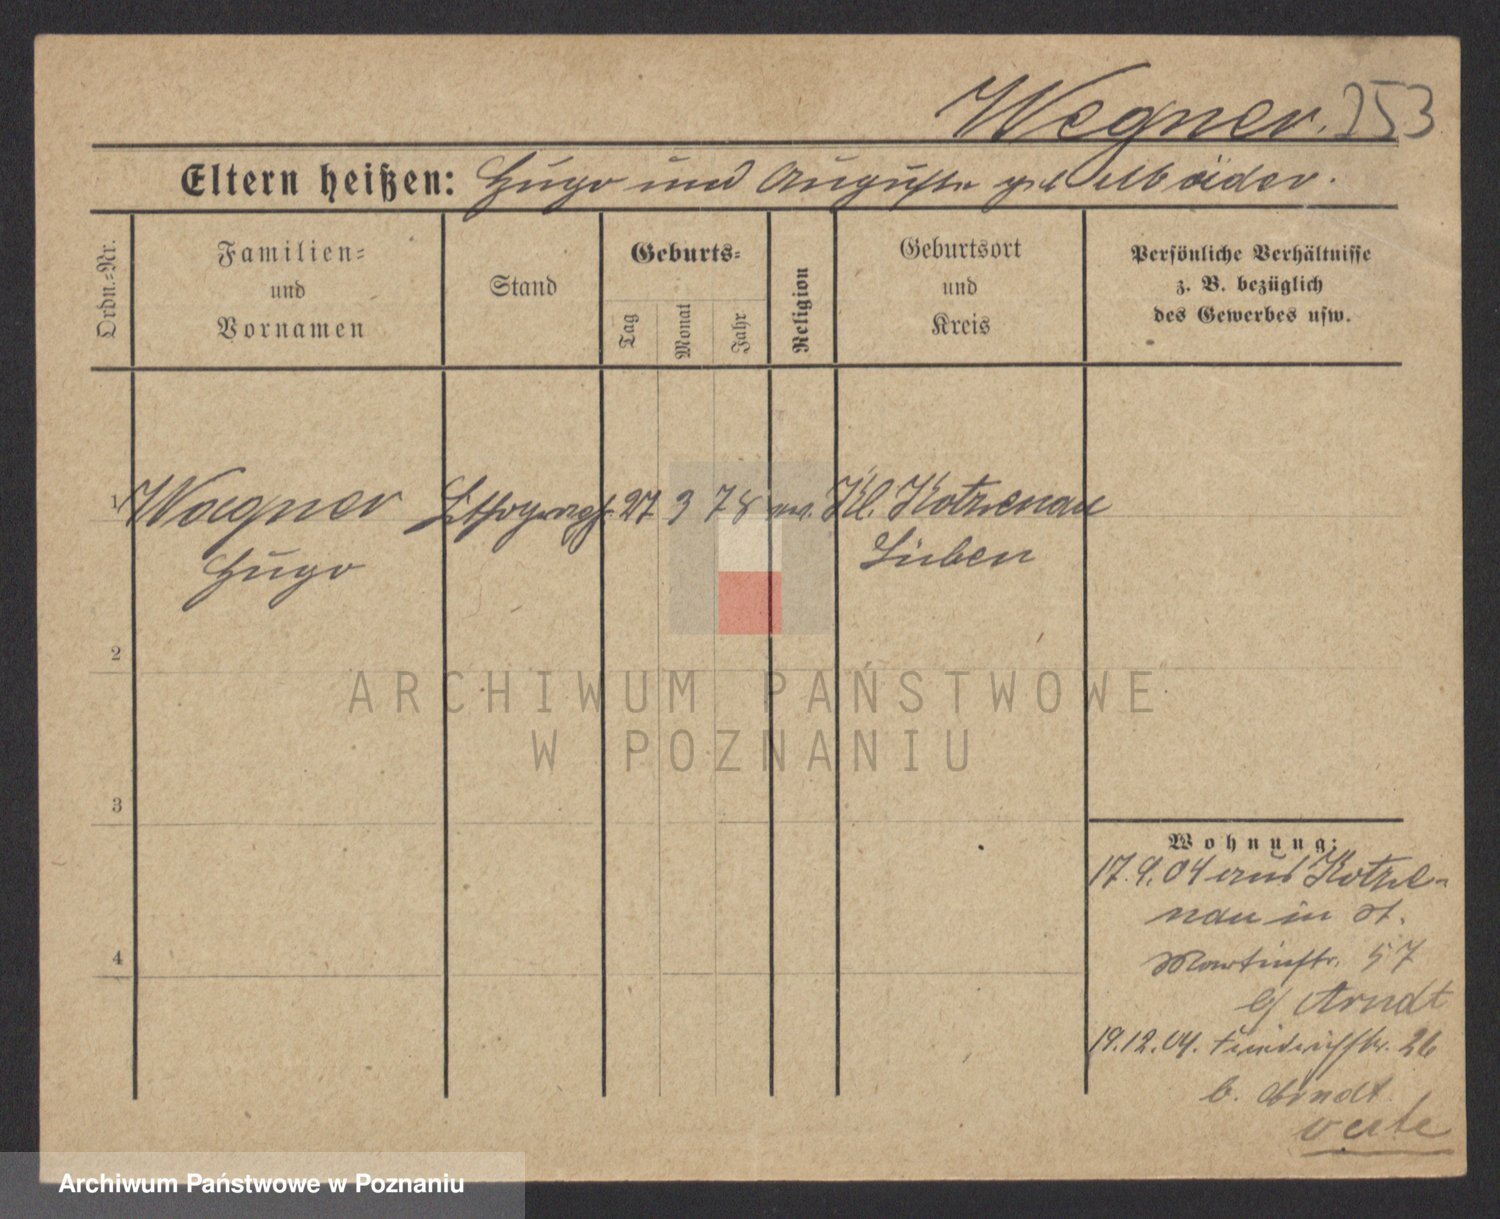 Wegner. 353
Eltern heißen: Hugo und Auguste geb Mäider.
Ordn.-Nr.
Familien-
und
Vornamen
Stand
Geburts-
Tag
Monat
Jahr
Religion
Geburtsort
und
Kreis
Persönliche Verhältnisse
z. B. bezüglich
des Gewerbes usw.
1 Wagner Lithograph 27 3 78 ev. Kl. Kotzenau
Hugo Lüben
2
3
4
Wohnung:
17.9.04 aus Kotze-
nau in St.
Martinstr. 57
b/ Arndt
19.12.04. Friedrichstr. 26
b. Arndt
verte
ARCHIWUM PAŃSTWOWE
W POZNANIU
Archiwum Państwowe w Poznaniu